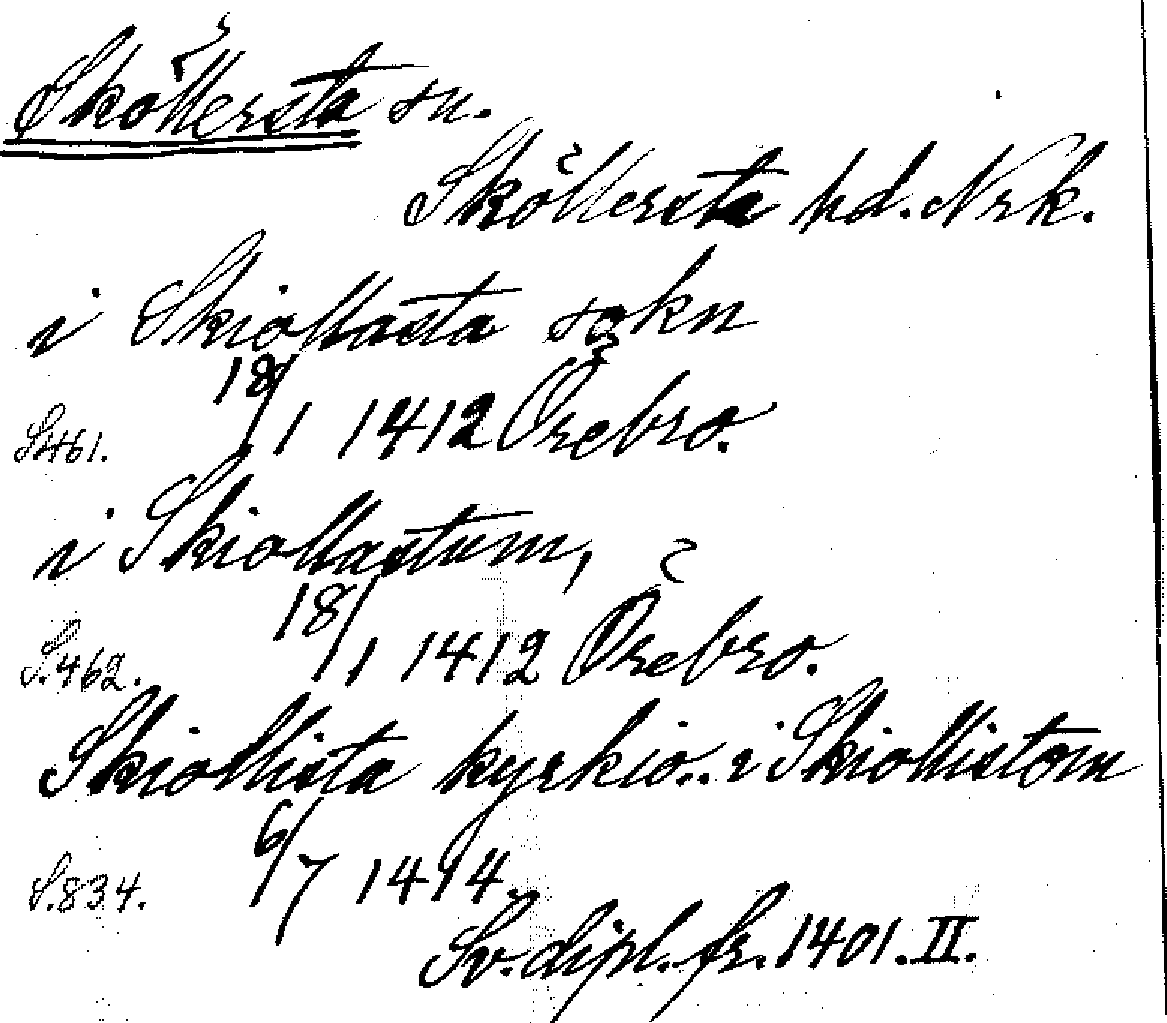 Sköllersta sn.
Sköllersta hd. Nrk.
i Skiollasta sokn
S. 461. 18/1 1412 Örebro.
i Skiollastum,
S. 462. 18/1 1412 Örebro.
Skiollista kyrkio.. i Skiollistom
S. 834. 6/7 1414.
Sv. dipl. fr. 1401. II.